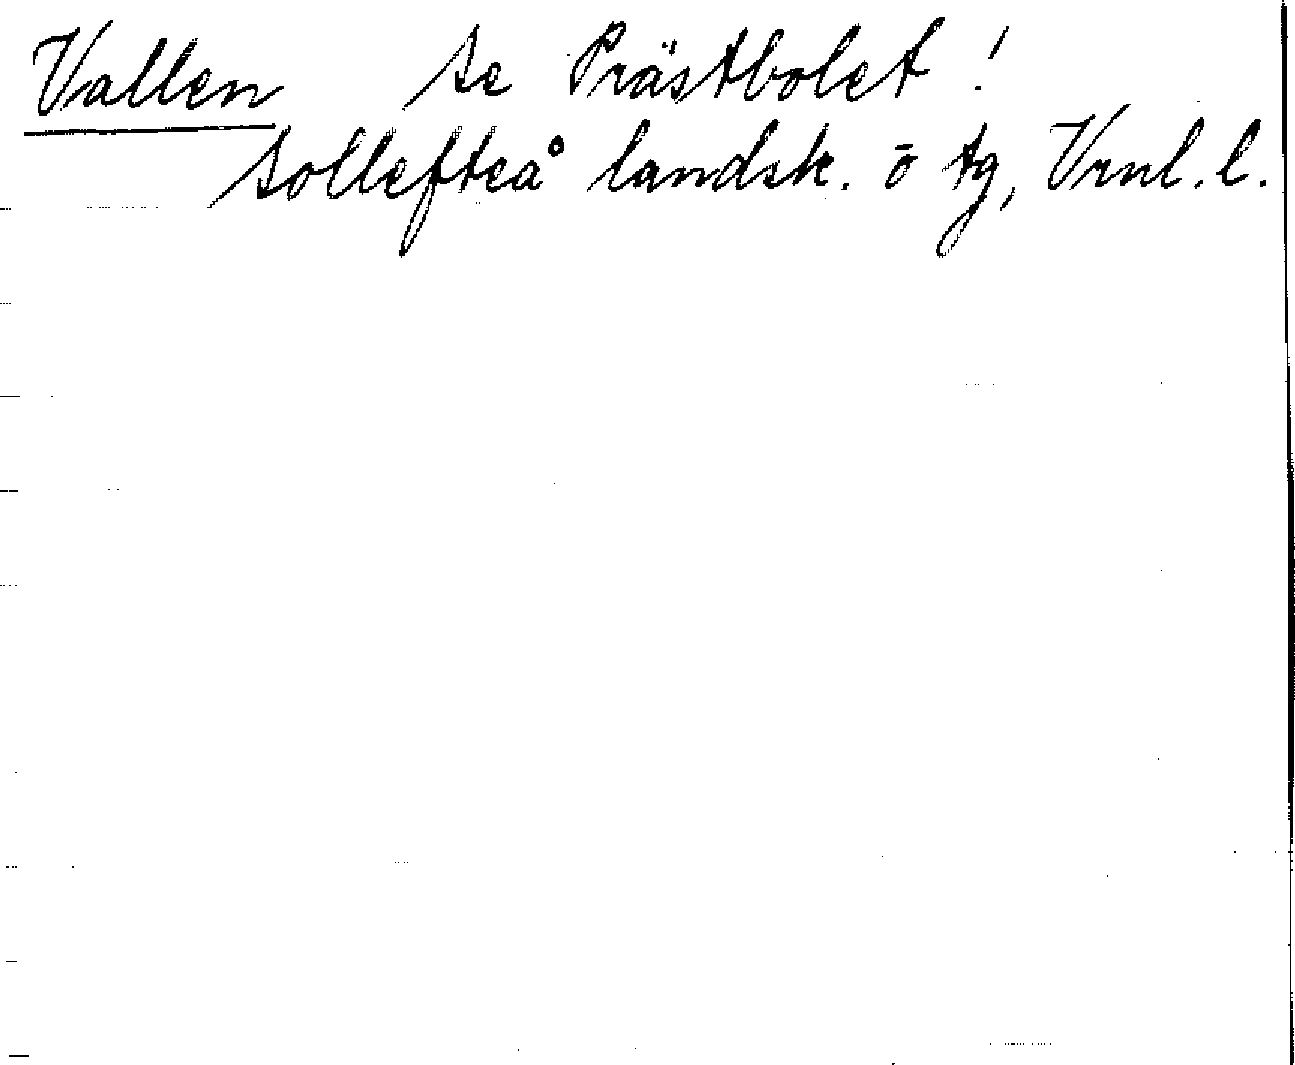 Vallen se Prästbolet!
Sollefteå landsk. ö tg, Vrnl. l.